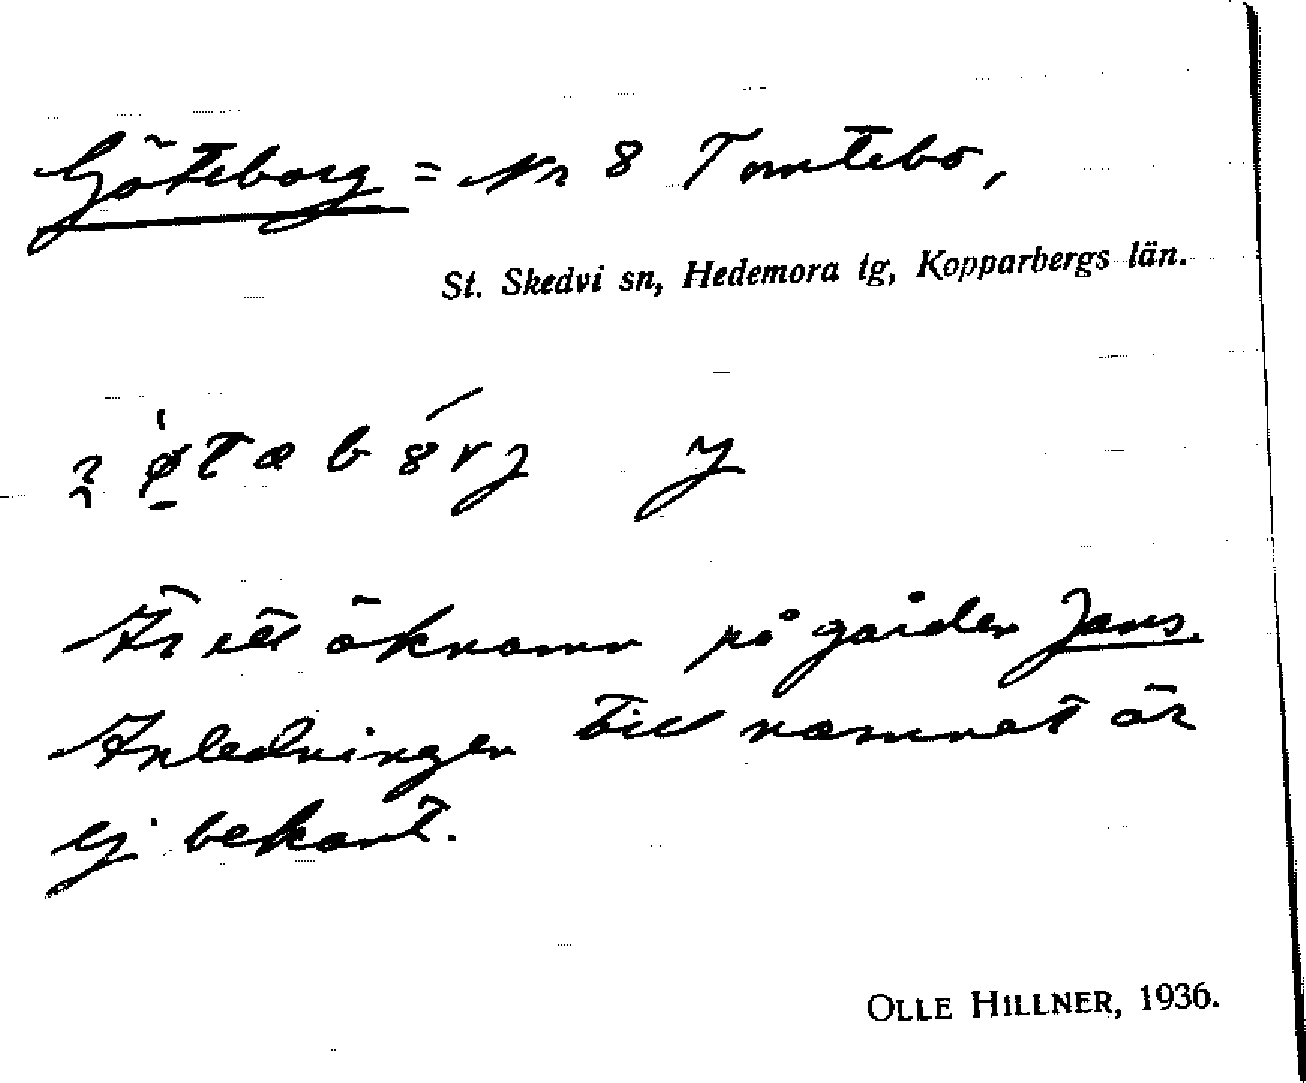 Göteborg = Nr 8 Tomtebo,
St. Skedvi sn, Hedemora tg, Kopparbergs län.
y
Är ett öknamn på gården Jans.
Anledningen till namnet är
ej bekant.
OLLE HILLNER, 1936.